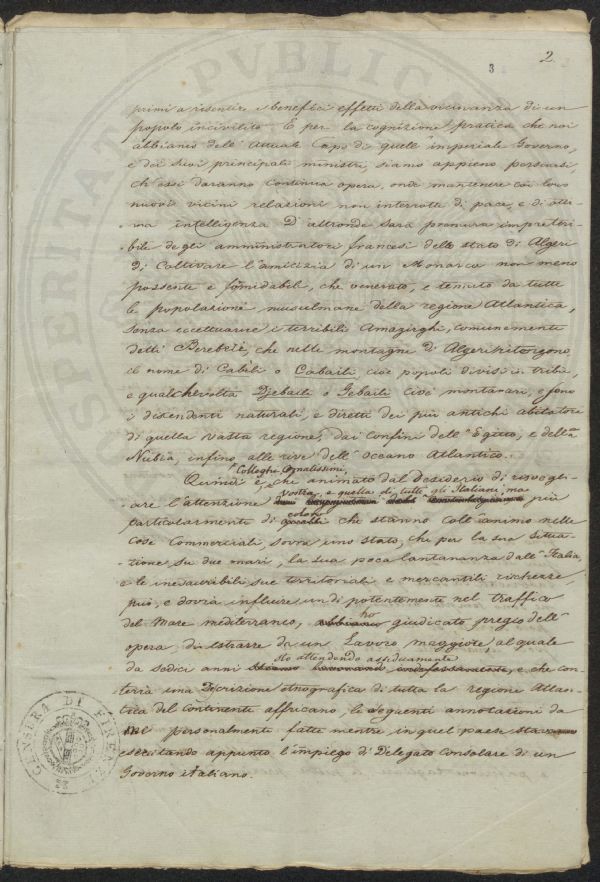 2
3
primi a risentire i benefici effetti della vicinanza di un
popolo incivilito E per la cognizione pratica che noi
abbiamo dell'Attuale Capo di quello imperiale Governo,
e dei suoi principali ministri, siamo appieno persuasi
ch'essi daranno continua opera, onde mantenere coi loro
nuovi vicini relazioni non interrotte di pace, e di otti-
-ma intelligenza D'altronde sarà premura impreteri-
-bile degli amministratori francesi dello stato di Algeri
di coltivare l'amicizia di un Monarca non meno
possente e formidabile, che venerato, e temuto da tutte
le popolazioni musulmane della regione Atlantica,
senza eccettuarne i terribili Amazirghi, comunemente
detti Berebrè, che nelle montagne di Algeri ritengono
il nome di Cabili o Cabaili cioè popoli divisi in tribù,
e qualchevolta Djebaili o Gebaili cioè montanari, e sono
i discendenti naturali, e diretti dei più antichi abitatori
di quella vasta regione, dai confini dell'Egitto, e della
Nubia, infino alle rive dell'Oceano Atlantico.
Colleghi Ornatissimi,
Quindi è, che animato dal desiderio di risvegli-
-are l'attenzione vostra, e quella di tutti gli Italiani, ma più
particolarmente di coloro che stanno coll'animo nelle
cose commerciali, sovra uno stato, che per la sua situa-
-zione su due mari, la sua poca lontananza dall'Italia,
e le inesauribili sue territoriali e mercantili richezze
può, e dovrà influire un dì potentemente nel traffico
del Mare mediterraneo, abbiamo ho giudicato pregio dell'
opera di estrarre da un Lavoro maggiore, al quale
da sedici anni sto attendendo assiduamente, e che con-
terrà una Descrizione etnografica di tutta la regione Atlan-
tica del continente affricano, le seguenti annotazioni da
me personalmente fatte mentre in quel paese stava
esercitando appunto l'impiego di Delegato consolare di un
Governo italiano.
CENSURA DI FIRENZE